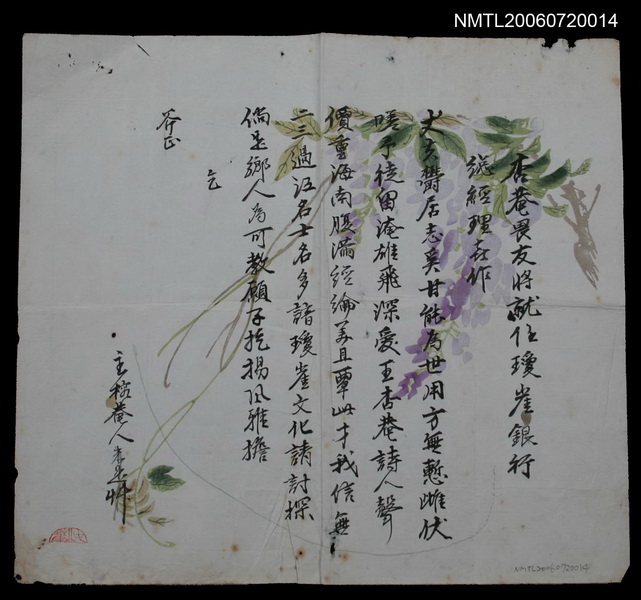 NMTL20060720014
杏菴畏友將就任瓊崖銀行
總經理喜作
丈夫鬱居志奚甘能為世用方無慙雌伏
嗟予徒困淹雄飛深愛王杏菴詩人聲
價重海南腹滿經綸美且覃此才我信無
二三過江名士名多諳瓊崖文化請討探
倘是鄉人為可教願予挖揚風雅擔
乞
斧正
主 菴人 艸
NMTL20060720014